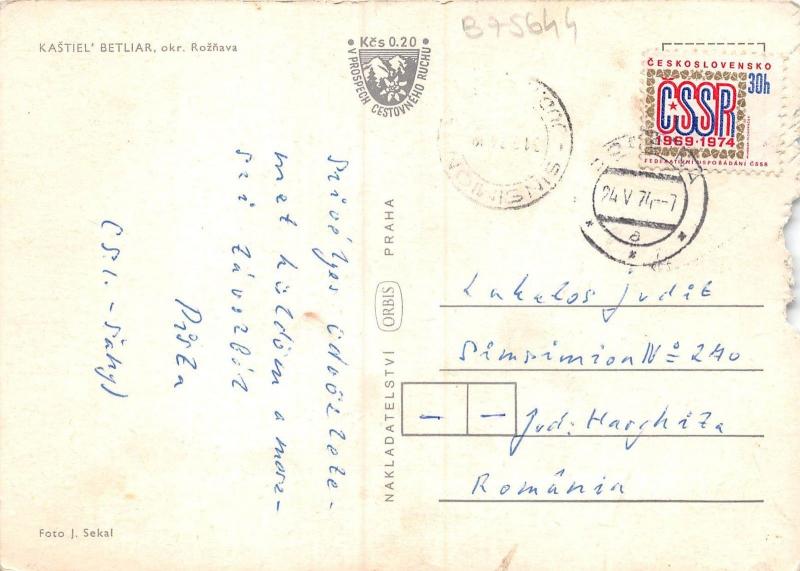 B75644
KAŠTIEĽ BETLIAR, okr. Rožňava
Kčs 0.20
V PROSPECH CESTOVNÉHO RUCHU
ČESKOSLOVENSKO
30h
ČSSR
1969·1974
FEDERATIVNÍ USPOŘÁDÁNÍ ČSSR
SINSIMION
24 V 74--7
a
Szivélyes üdvözlete-
met küldöm a
Pišta
(ČS.l.-Šahy)
NAKLADATELSTVÍ ORBIS PRAHA
Lukalos Judit
Simsimion Nº 240
Jud: Harghita
România
Foto J. Sekal